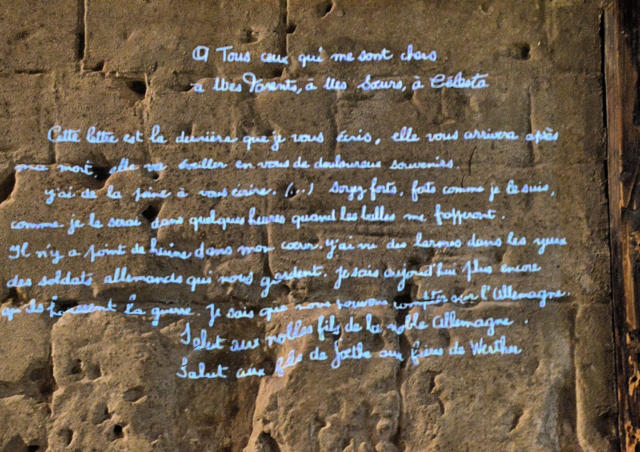 A Tous ceux qui me sont chers
a Mes Parents, à Mes Sœurs, à Célesta
Cette lettre est la dernière que je vous écris, elle vous arrivera après
ma mort, elle va éveiller en vous de douloureux souvenirs.
J'ai de la peine à vous écrire. (...) Soyez forts, forts comme je le suis,
comme je le serai dans quelques heures quand les balles me frapperont.
Il n'y a point de haine dans mon cœur. J'ai vu des larmes dans les yeux
des soldats allemands qui nous gardent. Je sais aujourd'hui plus encore
qu'ils haïssent la guerre. Je sais que nous pouvons compter sur l'Allemagne.
Salut aux nobles fils de la noble Allemagne.
Salut aux fils de Gœthe aux frères de Werther